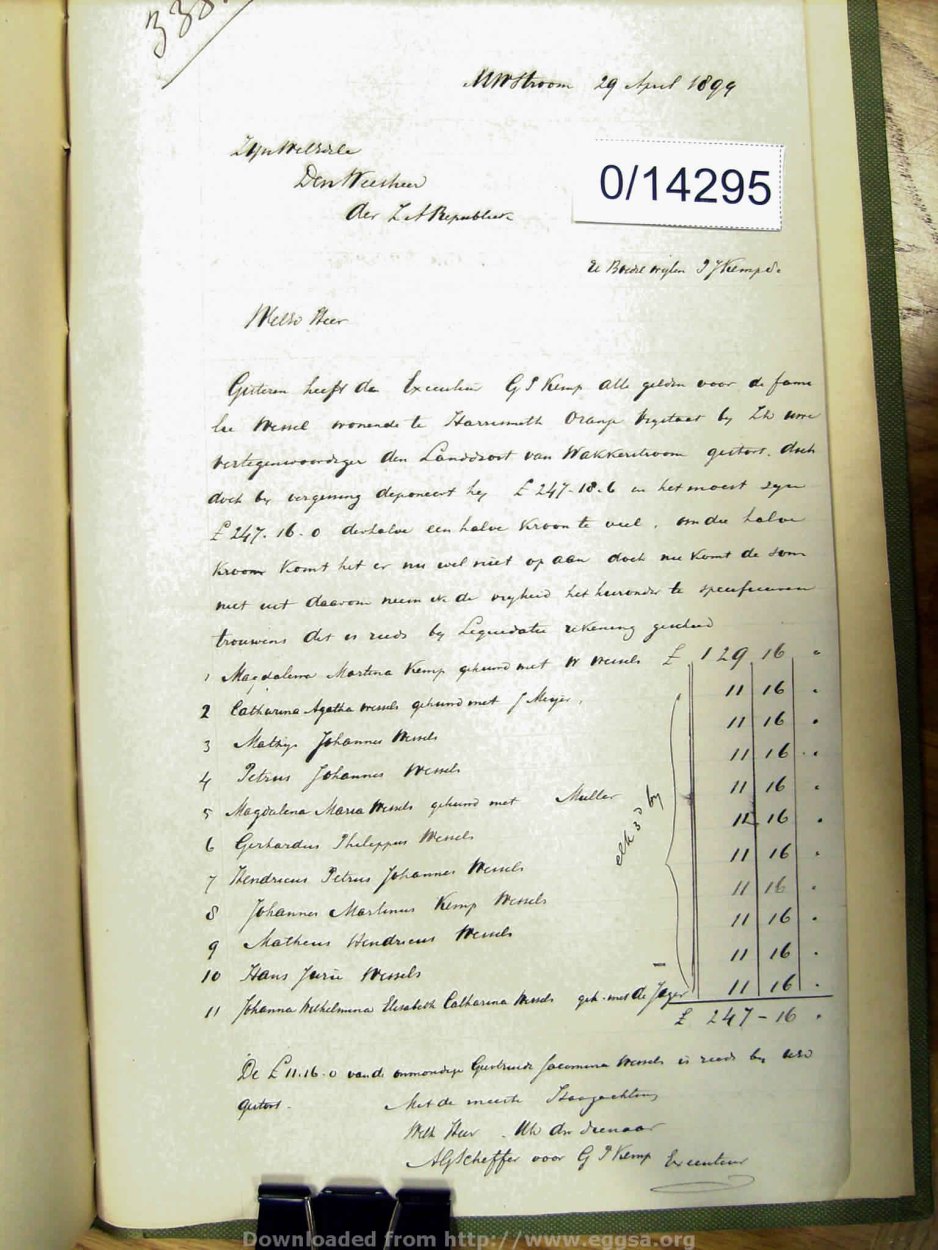 338
MWStroom 29 April 1899
ZijnWelEdele
Den Weesheer
der Z A Republiek
0/14295
Te Boedel wijlen P J Kemp Sr.
WelEd Heer
Gisteren heeft de Executeur G P Kemp alle gelden voor de fami
lie Wessel wonende te Harrismith Oranje Vrijstaat bij
vertegenwoordiger den Landdrost van Wakkerstroom gestort. doch
doch by vergissing deponeert hij £ 247-18.6 en het moest zijn
£ 247. 16. 0 derhalve een halve Kroon te veel, om die halve
Kroon Komt het er nu wel niet op aan doch nu Komt de som
niet uit daarom neem ik de vryheid het hieronder te specificeeren
trouwens dit is reeds by Liquidatie rekening geschied
1 Magdalena Martina Kemp gehuwd met W Wessels £ 129 16 "
2 Catharina Agatha Wessels gehuwd met J Meyer, 11 16 "
3 Mathys Johannes Wessels 11 16 "
4 Petrus Johannes Wessels 11 16 "
5 Magdalena Maria Wessels gehuwd met Muller 11 16 "
6 Gerhardus Philippus Wessels 11 16 "
7 Hendricus Petrus Johannes Wessels 11 16 "
8 Johannes Martinus Kemp Wessels 11 16 "
9 Matheus Hendricus Wessels 11 16 "
10 Hans Jurie Wessels 11 16 "
11 Johanna Wilhelmina Elisabeth Catharina Wessels geh. met de Jager 11 16 "
elk
£ 247 - 16 "
De £ 11.16.0 van de onmondige Geertruida Jacomina Wessels is reeds by
gestort.
Met de meeste Hoogachting
WelEd Heer. UEd dw dienaar
A G Scheffer voor G P Kemp Executeur
Downloaded from http://www.eggsa.org